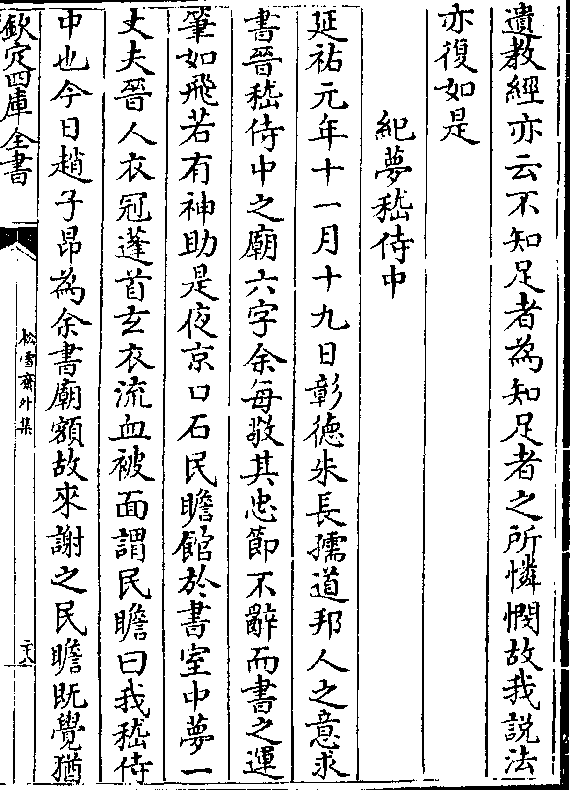 遺教經亦云不知足者為知足者之所憐憫故我說法
亦復如是
紀夢嵇侍中
延祐元年十一月十九日彰德朱長孺道邦人之意求
書晉嵇侍中之廟六字余每敬其忠節不辭而書之運
筆如飛若有神助是夜京口石民瞻館於書室中夢一
丈夫晉人衣冠蓬首玄衣流血被面謂民瞻曰我嵇侍
中也今日趙子昂為余書廟額故來謝之民瞻既覺猶
欽定四庫全書
松雪齋外集
二十八